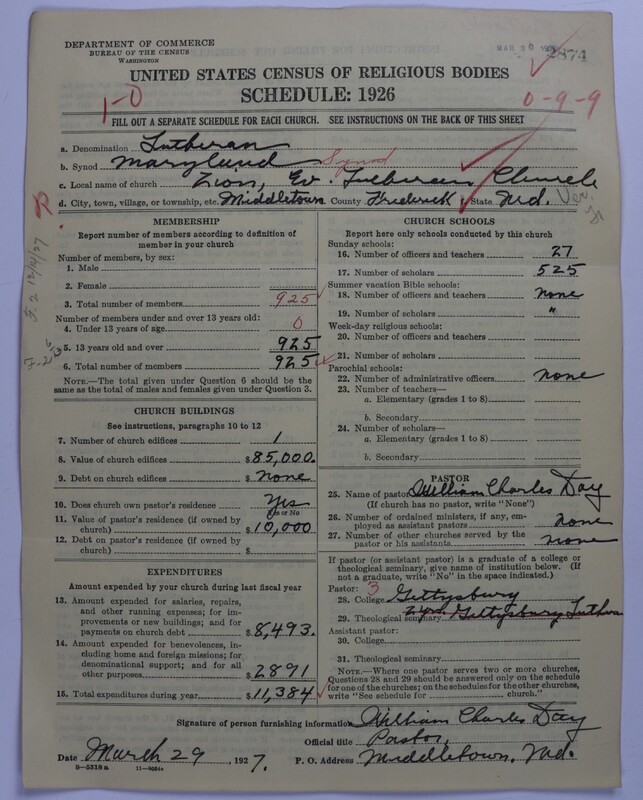 DEPARTMENT OF COMMERCE
BUREAU OF THE CENSUS
WASHINGTON
MAR 30
2874
UNITED STATES CENSUS OF RELIGIOUS BODIES
SCHEDULE: 1926
1-0
0-9-9
FILL OUT A SEPARATE SCHEDULE FOR EACH CHURCH. SEE INSTRUCTIONS ON THE BACK OF THIS SHEET
a. Denomination Lutheran
b. Synod Maryland Synod
c. Local name of church Zion, Ev. Lutheran Church
d. City, town, village, or township, etc. Middletown County Frederick State Md.
Ver.
MEMBERSHIP
Report number of members according to definition of member in your church
Number of members, by sex:
1. Male
2. Female
3. Total number of members 925
Number of members under and over 13 years old:
4. Under 13 years of age 0
5. 13 years old and over 925
6. Total number of members 925
NOTE.—The total given under Question 6 should be the same as the total of males and females given under Question 3.
F. 2 12/14/27
CHURCH BUILDINGS
See instructions, paragraphs 10 to 12
7. Number of church edifices 1
8. Value of church edifices $85,000.
9. Debt on church edifices $ none
10. Does church own pastor's residence Yes
Yes or No
11. Value of pastor's residence (if owned by church) $10,000
12. Debt on pastor's residence (if owned by church) $
EXPENDITURES
Amount expended by your church during last fiscal year
13. Amount expended for salaries, repairs, and other running expenses; for improvements or new buildings; and for payments on church debt $8,493.
14. Amount expended for benevolences, including home and foreign missions; for denominational support; and for all other purposes. $2891
15. Total expenditures during year $11,384
CHURCH SCHOOLS
Report here only schools conducted by this church
Sunday schools:
16. Number of officers and teachers 27
17. Number of scholars 525
Summer vacation Bible schools:
18. Number of officers and teachers none
19. Number of scholars "
Week-day religious schools:
20. Number of officers and teachers
21. Number of scholars
Parochial schools:
22. Number of administrative officers none
23. Number of teachers—
a. Elementary (grades 1 to 8)
b. Secondary
24. Number of scholars—
a. Elementary (grades 1 to 8)
b. Secondary
PASTOR
25. Name of pastor William Charles Day
(If church has no pastor, write "None")
26. Number of ordained ministers, if any, employed as assistant pastors none
27. Number of other churches served by the pastor or his assistants none
If pastor (or assistant pastor) is a graduate of a college or theological seminary, give name of institution below. (If not a graduate, write "No" in the space indicated.)
Pastor: 3
28. College Gettysburg
29. Theological seminary Gettysburg Luthera
Assistant pastor:
30. College
31. Theological seminary
NOTE.—Where one pastor serves two or more churches, Questions 28 and 29 should be answered only on the schedule for one of the churches; on the schedules for the other churches, write "See schedule for church."
Signature of person furnishing information William Charles Day
Official title Pastor,
Date March 29, 1927.
P. O. Address Middletown, Md.
8—5318 a